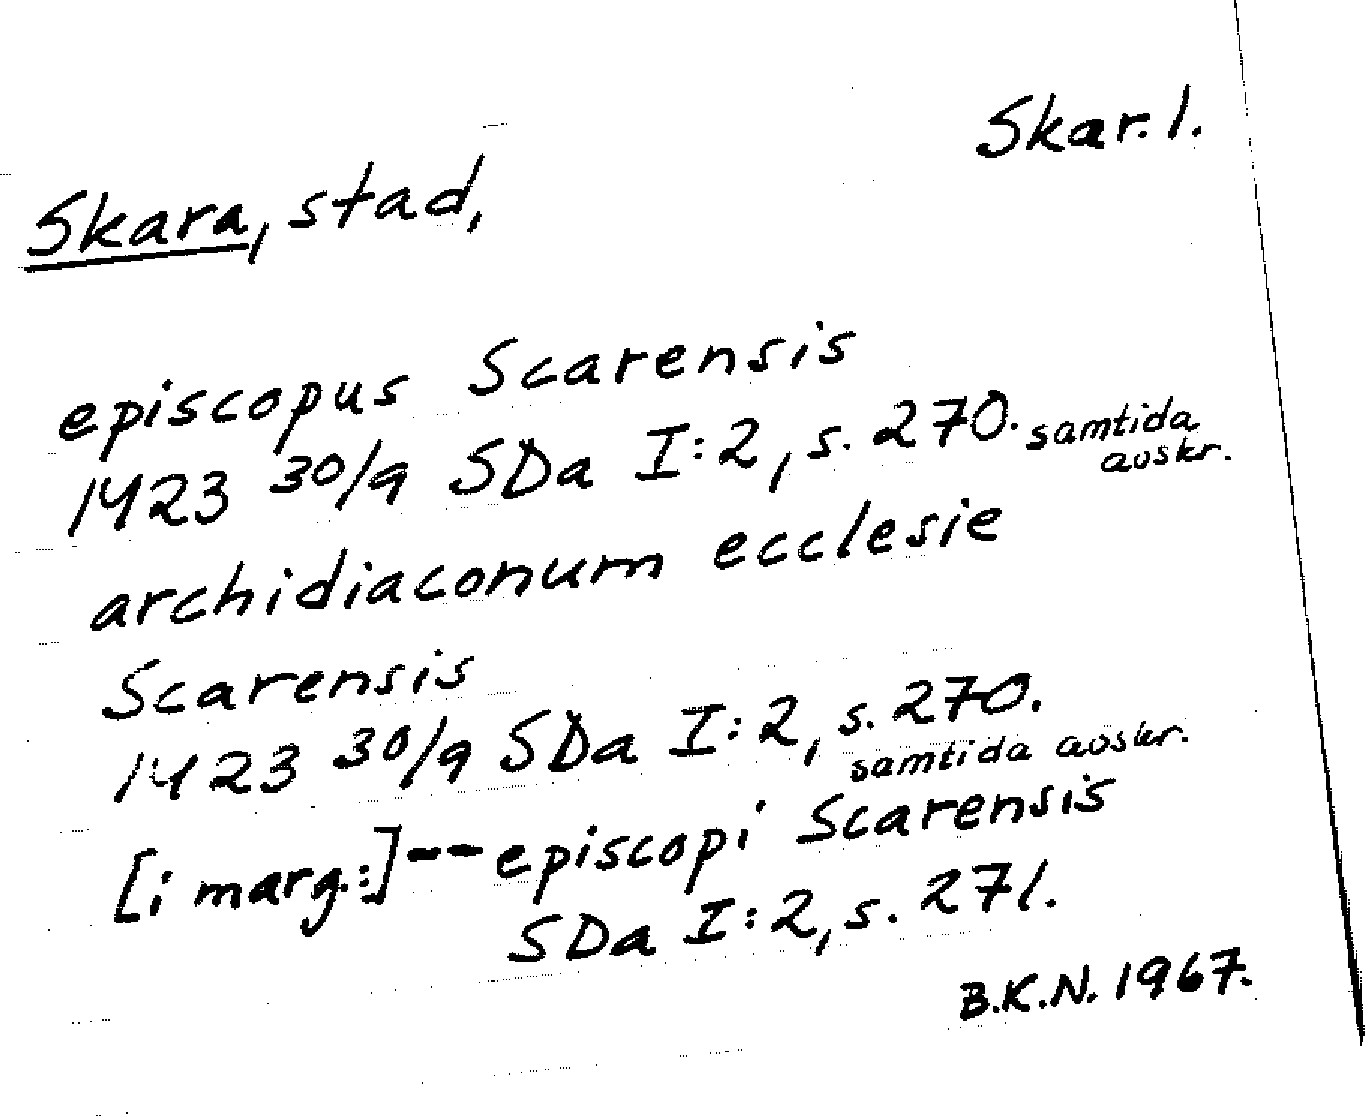 Skar. l.
Skara, stad,
episcopus Scarensis
1423 30/9 SDa I:2, s. 270. samtida
avskr.
archidiaconum ecclesie
Scarensis
1423 30/9 SDa I:2, s. 270.
samtida avskr.
[i marg.:] -- episcopi Scarensis
SDa I:2, s. 271.
B.K.N. 1967.